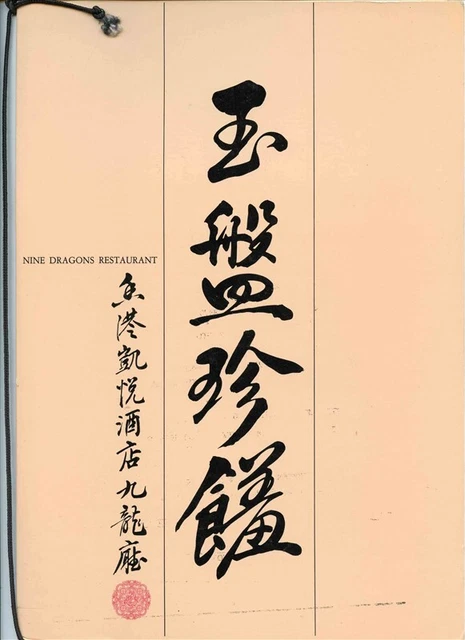 玉盤珍饈
NINE DRAGONS RESTAURANT
香港凱悅酒店九龍廳